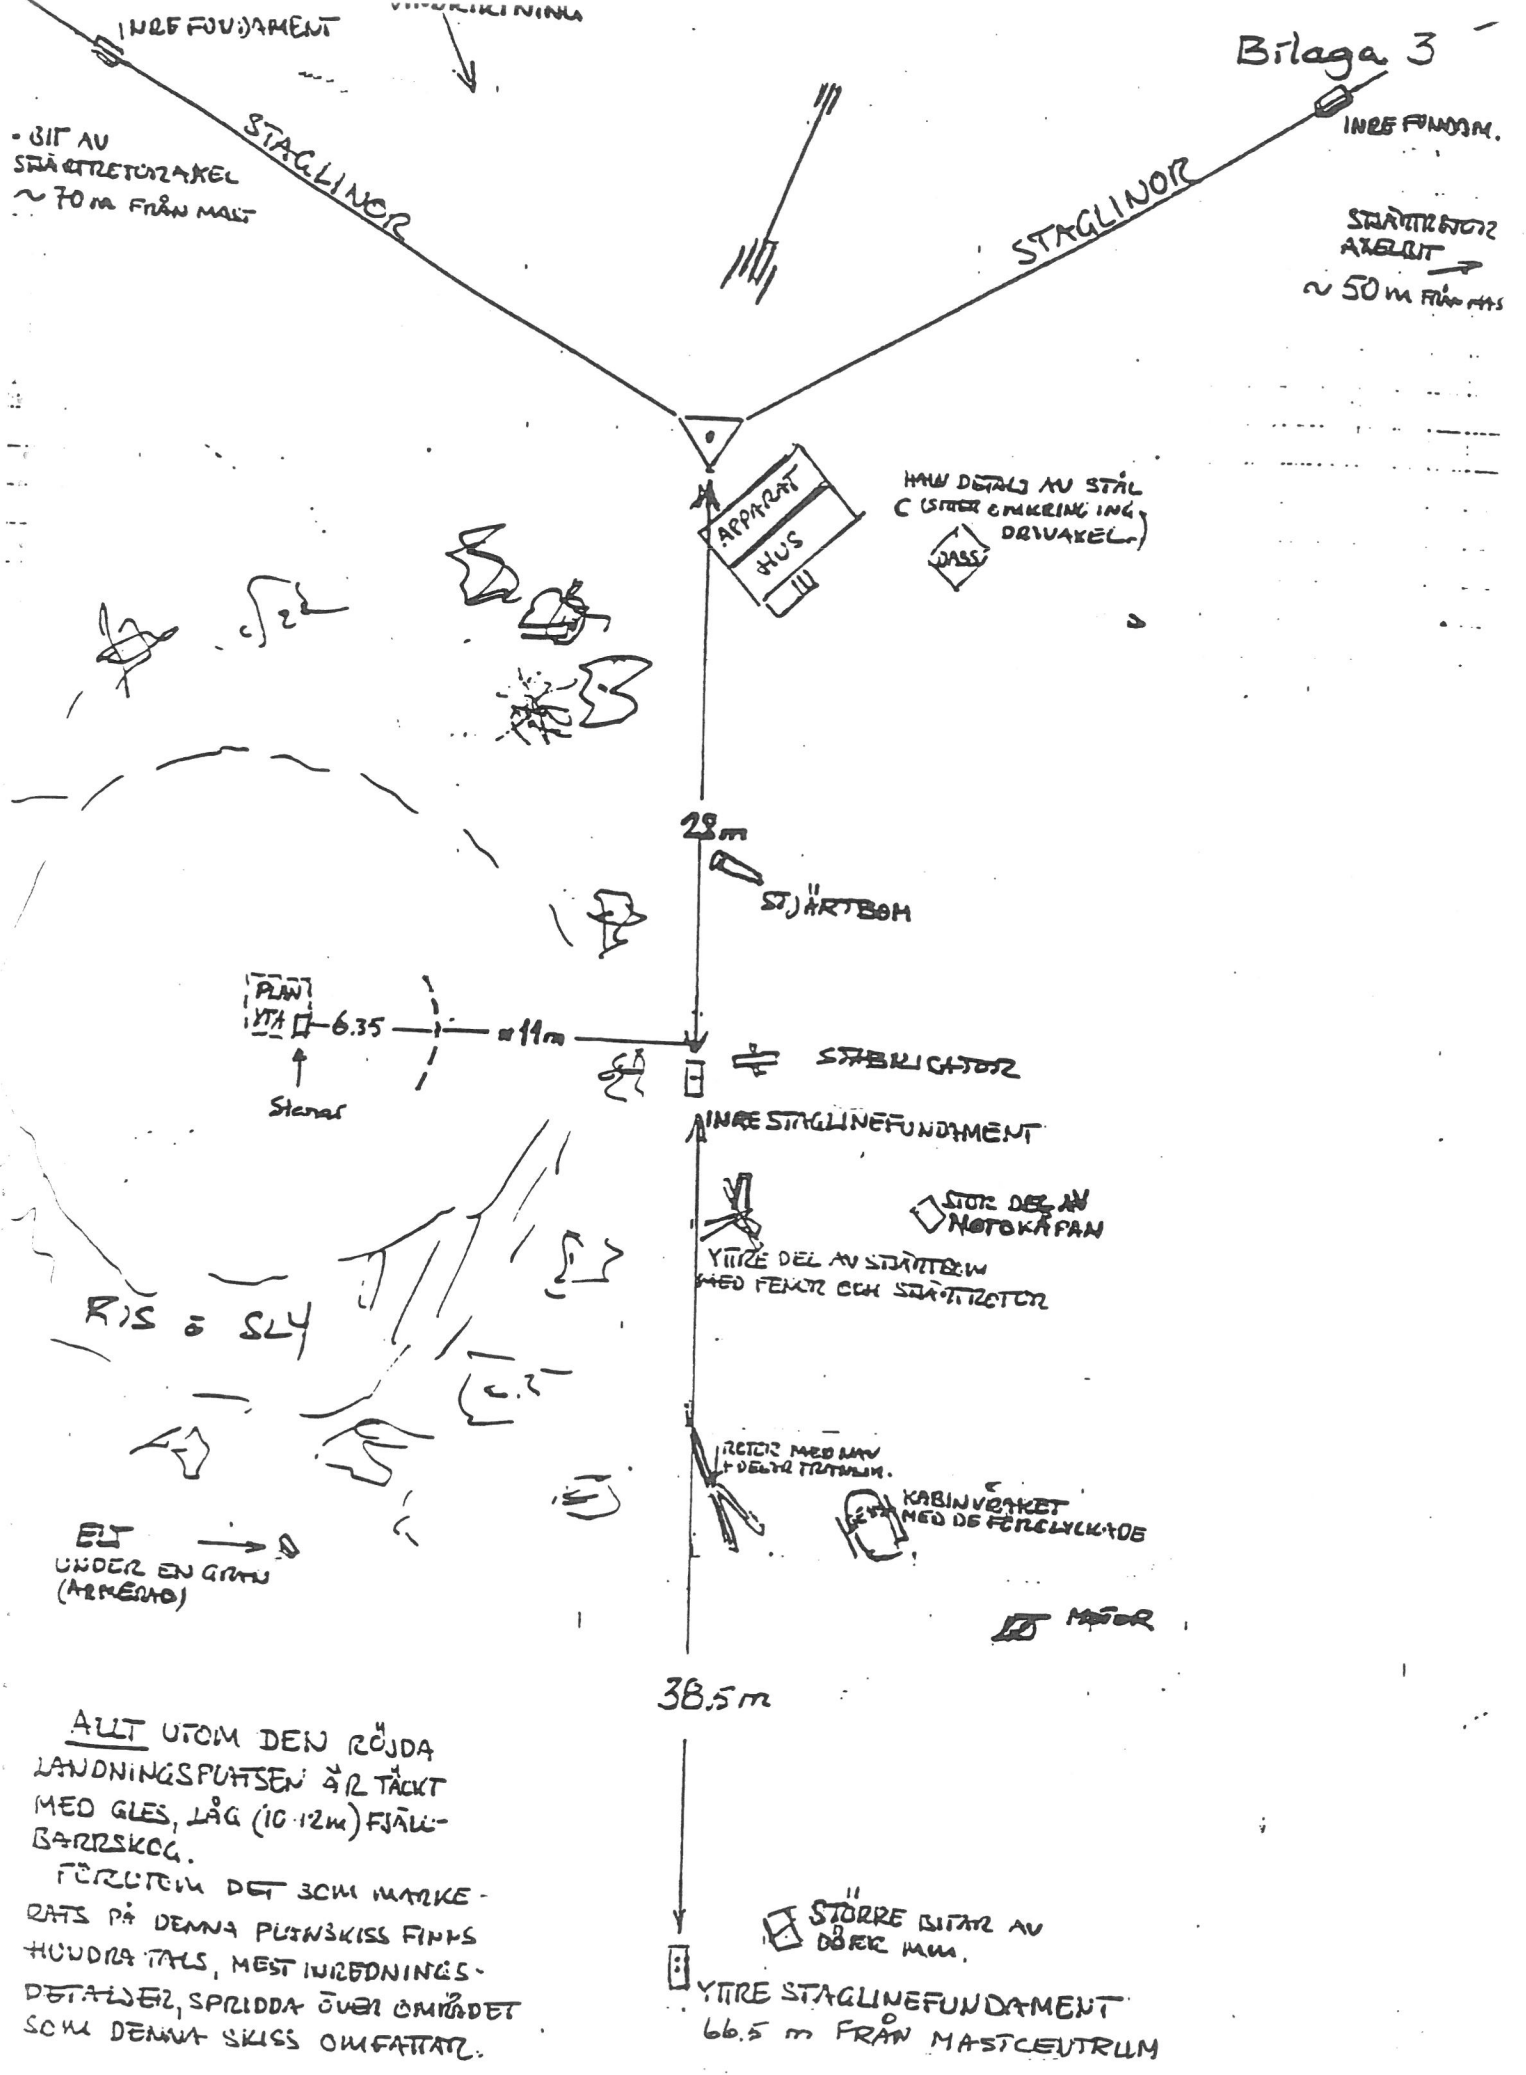 INRE FUNDAMENT
Bilaga 3
INRE FUNDAM.
- BIT AV
~ 70 m FRÅN MAST
STAGLINOR
STAGLINOR
STJÄRTROTOR
AXELBIT
~ 50 m FRÅN MAS
APPARAT
HUS
HALV DETALJ AV STÅL
DRIVAXEL.)
DASS
28m
STJÄRTBOM
PLAN
YTA
6.35
11m
Stenar
STABILISATOR
INRE STAGLINEFUNDAMENT
STOR DEL AV
MOTORKÅPAN
YTTRE DEL AV STJÄRTBOM
MED FENOR OCH STJÄRTROTOR
RIS o SLY
ROTOR MED NAV
KABINVRAKET
MED DE FÖROLYCKADE
ELT
UNDER EN GRAN
(ARMERAD)
MOTOR
38.5m
ALLT UTOM DEN RÖJDA
LANDNINGSPLATSEN ÄR TÄCKT
MED GLES, LÅG (10-12m) FJÄLL-
BARRSKOG.
FÖRUTOM DET SOM MARKE-
RATS PÅ DENNA PLANSKISS FINNS
HUNDRATALS, MEST INREDNINGS-
DETALJER, SPRIDDA ÖVER OMRÅDET
SOM DENNA SKISS OMFATTAR.
STÖRRE BITAR AV
DÖRR MM.
YTTRE STAGLINEFUNDAMENT
66.5 m FRÅN MASTCENTRUM